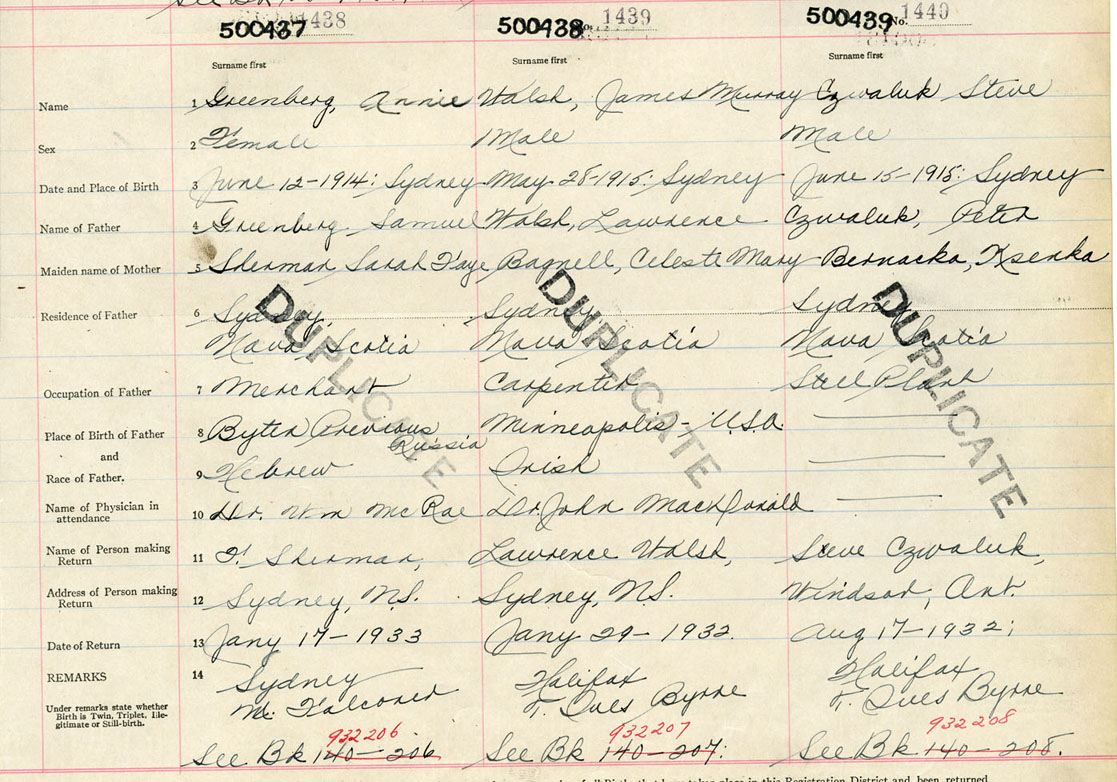 See Bk
500437 1438 500438 No. 1439 500439 No. 1440
Surname first Surname first Surname first
Name 1 Greenberg, Annie Walsh, James Murray Czwaluk Steve
Sex 2 Female Male Male
Date and Place of Birth 3 June 12-1914: Sydney May 28-1915: Sydney June 15-1915: Sydney
Name of Father 4 Greenberg Samuel Walsh, Lawrence Czwaluk, Peter
Maiden name of Mother 5 Sherman, Sarah Faye Bagnell, Celeste Mary Bernacka, Ksenka
Residence of Father 6 Sydney, Sydney, Sydney
Nova Scotia Nova Scotia Nova Scotia
DUPLICATE DUPLICATE DUPLICATE
Occupation of Father 7 Merchant Carpenter Steel Plant
Place of Birth of Father 8 Byten Previous Minneapolis - U.S.A.
Russia
and
Race of Father. 9 Hebrew Irish
Name of Physician in
attendance 10 Dr. Wm McRae Dr. John MacDonald
Name of Person making
Return 11 F. Sherman, Lawrence Walsh, Steve Czwaluk,
Address of Person making
Return 12 Sydney, N.S. Sydney, N.S. Windsor, Ont.
Date of Return 13 Jany 17-1933 Jany 29-1932. Aug 17-1932;
REMARKS 14 Sydney Halifax Halifax
Under remarks state whether
Birth is Twin, Triplet, Ille-
gitimate or Still-birth.
M. Falconer F. Ives Byrne F. Ives Byrne
932206 932207 932208
See Bk 140-206 See Bk 140-207. See Bk 140-208.
of Birth that have taken place in this Registration District and been returned